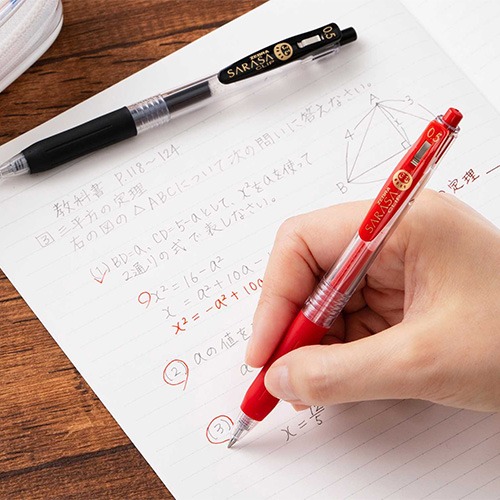 0.5
ZEBRA
SARASA
CLIP
教科書 P118〜124
3 三平方の定理
右の図の△ABCについて次の問いに答えなさい。
A
3
4
x
B
(1) BD=a, CD=5-aとして、x²をaを使って
2通りの式で表しなさい。
x² = 16-a²
x = a² + 10a
x² = -a² + 10
(2) aの値を
(3)
x = 12/5
の定理
0.5
ZEBRA
SARASA
CLIP